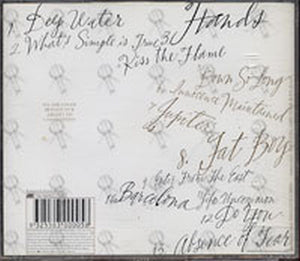 1. Deep Water
Hands
2 What's Simple is True 3
Kiss The Flame
Down So Long
Innocence Maintained
7 Jupiter
8. Fat Boy
9 Enter From The East
10 Barcelona
Life Uncommon
12 Do You
13 Absence of Fear
9 325583 000058